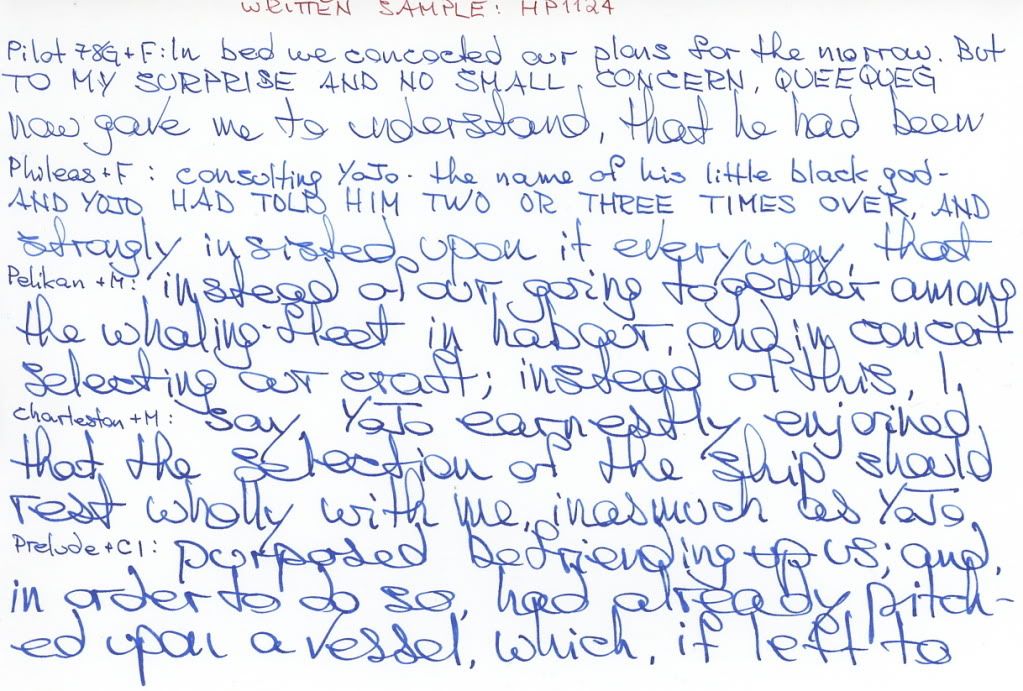 WRITTEN SAMPLE: HP1124
Pilot 78G+F: In bed we concocted our plans for the morrow. But
TO MY SURPRISE AND NO SMALL CONCERN, QUEEQUEG
now gave me to understand, that he had been
Phileas+F : consulting YoJo - the name of his little black god -
AND YOJO HAD TOLD HIM TWO OR THREE TIMES OVER, AND
strongly insisted upon it everyway, that
Pelikan +M: instead of our going together among
the whaling-fleet in habger, and in concert
selecting our craft; instead of this, I,
Charleston +M: say, YoJo earnestly enjoined
that the selection of the ship should
rest wholly with me, inasmuch as YoJo,
Prelude +C1: purposed befriending up us; and,
in order to do so, had already pitch-
ed upon a vessel, which, if left to